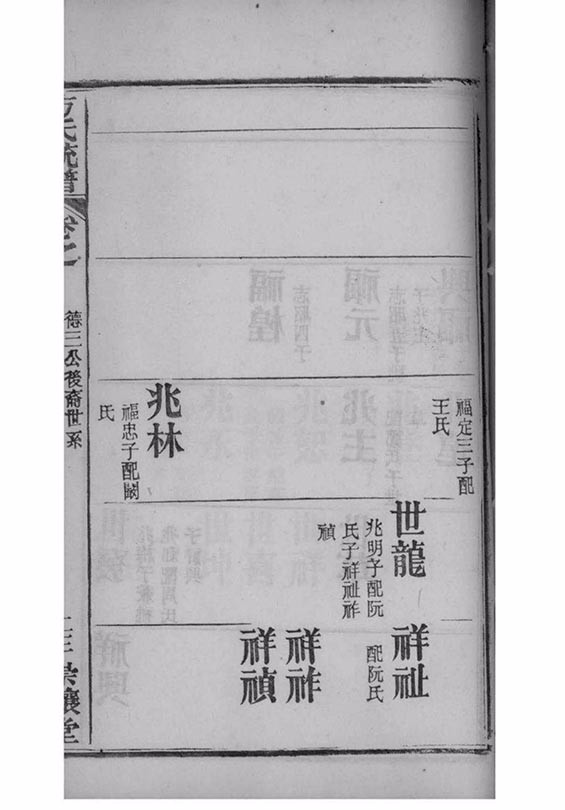 福定三子配
王氏
兆林
福忠子配闞
氏
世龍
兆明子配阮
氏子祥祉祚
禎
祥祉
配阮氏
祥祚
祥禎
氏統譜
卷之
德三公後裔世系
堂